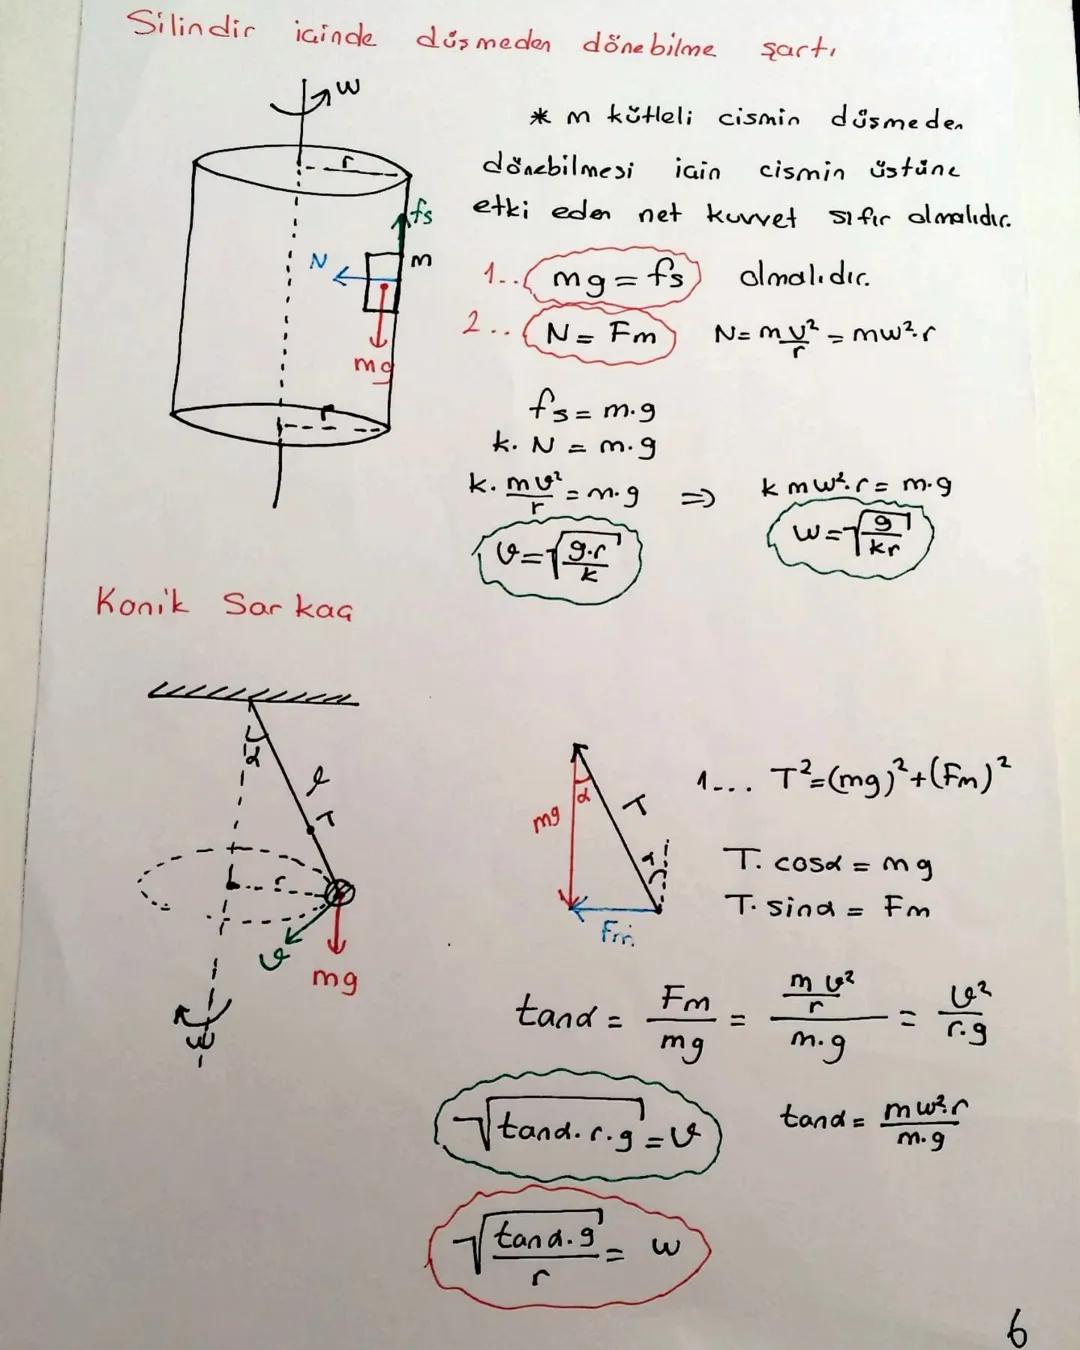 Silindir içinde düşmeden dönebilme şartı
w
r
fs
N
m
mg
r
* m kütleli cismin düşmeden
dönebilmesi için cismin üstüne
etki eden net kuvvet sıfır olmalıdır.
1.. mg = fs olmalıdır.
2.. N = Fm N = mv²/r = mw².r
fs = m.g
k. N = m.g
k. mv²/r = m.g ⇒ k mw².r = m.g
v = √(g.r/k) w = √(g/kr)
Konik Sarkaç
α
l
T
r
v
mg
w
mg
α
T
α
Fm
1... T² = (mg)² + (Fm)²
T. cosα = mg
T. sinα = Fm
tanα = Fm/mg = (mv²/r)/(m.g) = v²/(r.g)
√(tanα.r.g) = v
tanα = mw².r/(m.g)
√(tanα.g/r) = w
6